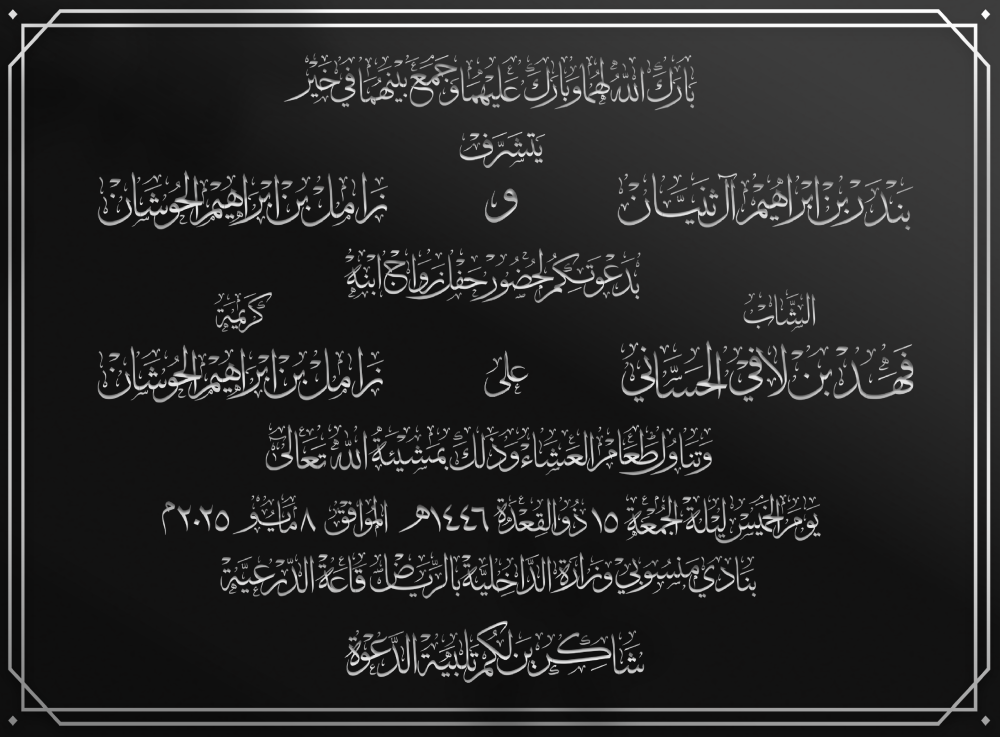 بَارَكَ اللَّهُ لَهُمَا وَبَارَكَ عَلَيْهِمَا وَجَمَعَ بَيْنَهُمَا فِي خَيْرٍ
يتشرف
بندر بن ابراهيم آل ثنيان و زامل بن ابراهيم الحوشان
بدعوتكم لحضور حفل زواج ابنه
الشاب كريمة
فهد بن لافي الحساني على زامل بن ابراهيم الحوشان
وتناول طعام العشاء وذلك بمشيئة الله تعالى
يوم الخميس ليلة الجمعة ١٥ ذو القعدة ١٤٤٦هـ الموافق ٨ مايو ٢٠٢٥م
بنادي منسوبي وزارة الداخلية بالرياض قاعة الدرعية
شاكرين لكم تلبية الدعوة